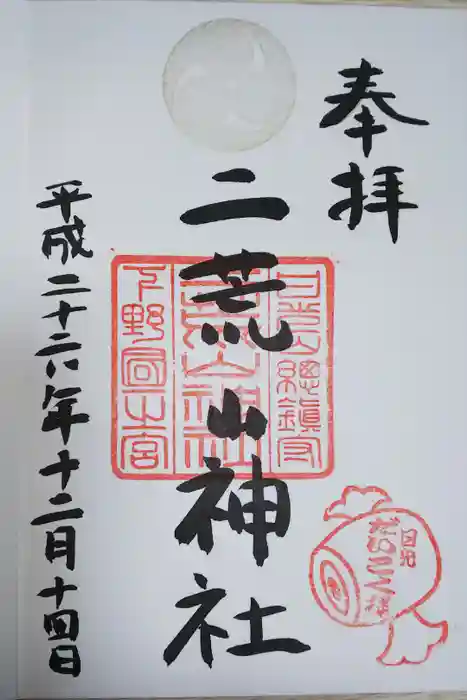 奉拝
二荒山神社
平成二十六年十二月十四日
下野國一之宮
二荒山神社
日光
だいこく様